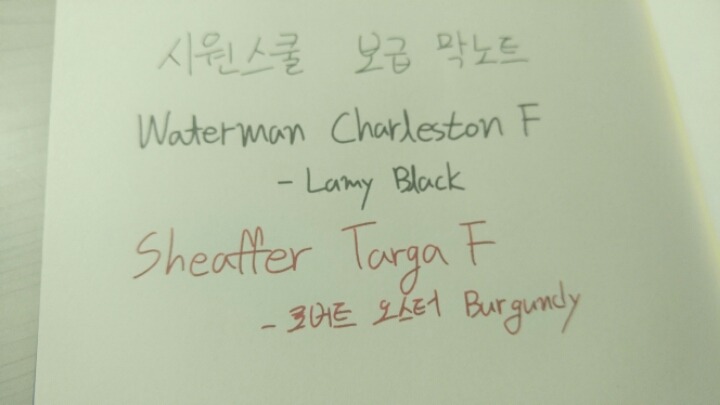 시원스쿨 보급 막노트
Waterman Charleston F
- Lamy Black
Sheaffer Targa F
- 로버트 오스터 Burgundy